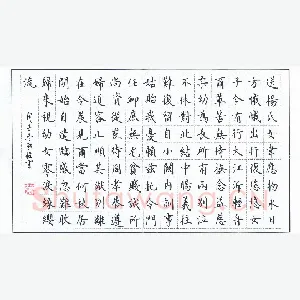 送楊氏女韋應物永日
方慼慼出行復悠悠女
子今有行大江泝輕舟
爾輩苦無恃撫念益慈
柔幼為長所育兩別泣
不休對此結中腸義往
難復留自小闕內訓事
姑貽我憂賴茲托令門
任卹庶無尤貧儉誠所
尚資從豈待周孝恭遵
婦道容止順其猷別離
在今晨見爾當何秋居
閒始自遣臨感忽難收
歸來視幼女零淚緣纓
流